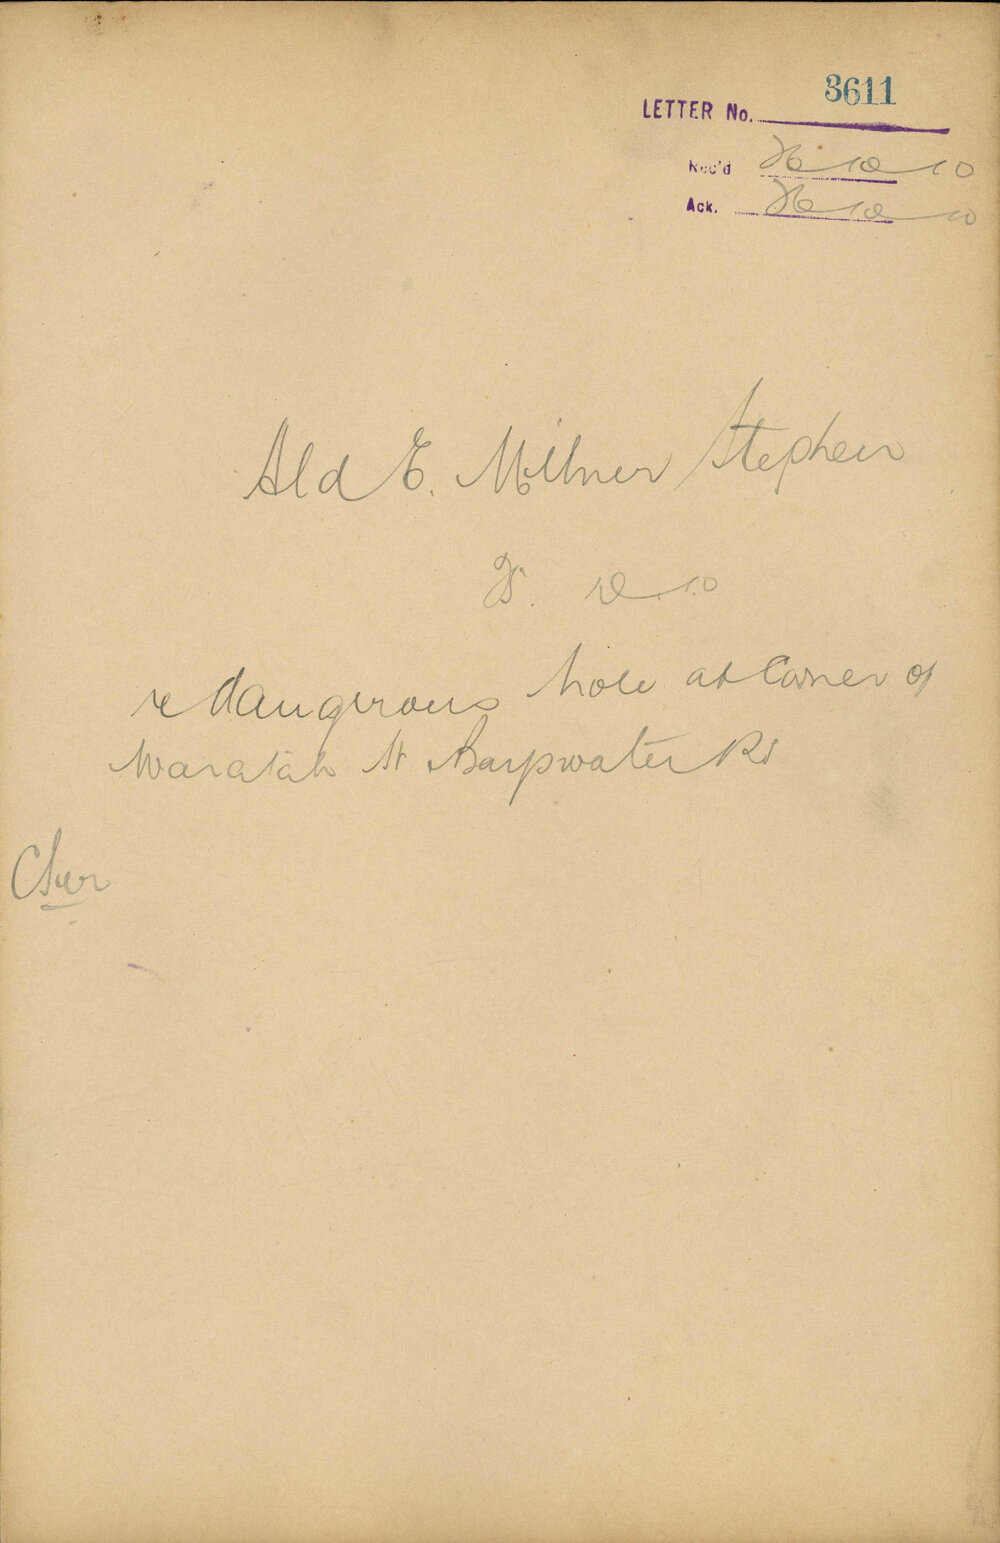 LETTER No. 3611
Rec'd 26 10 10
Ack. 26 10 10
Ald E. Milner Stephen
25. 10. 10
re dangerous hole at Corner of
Waratah St Baypwater Rd